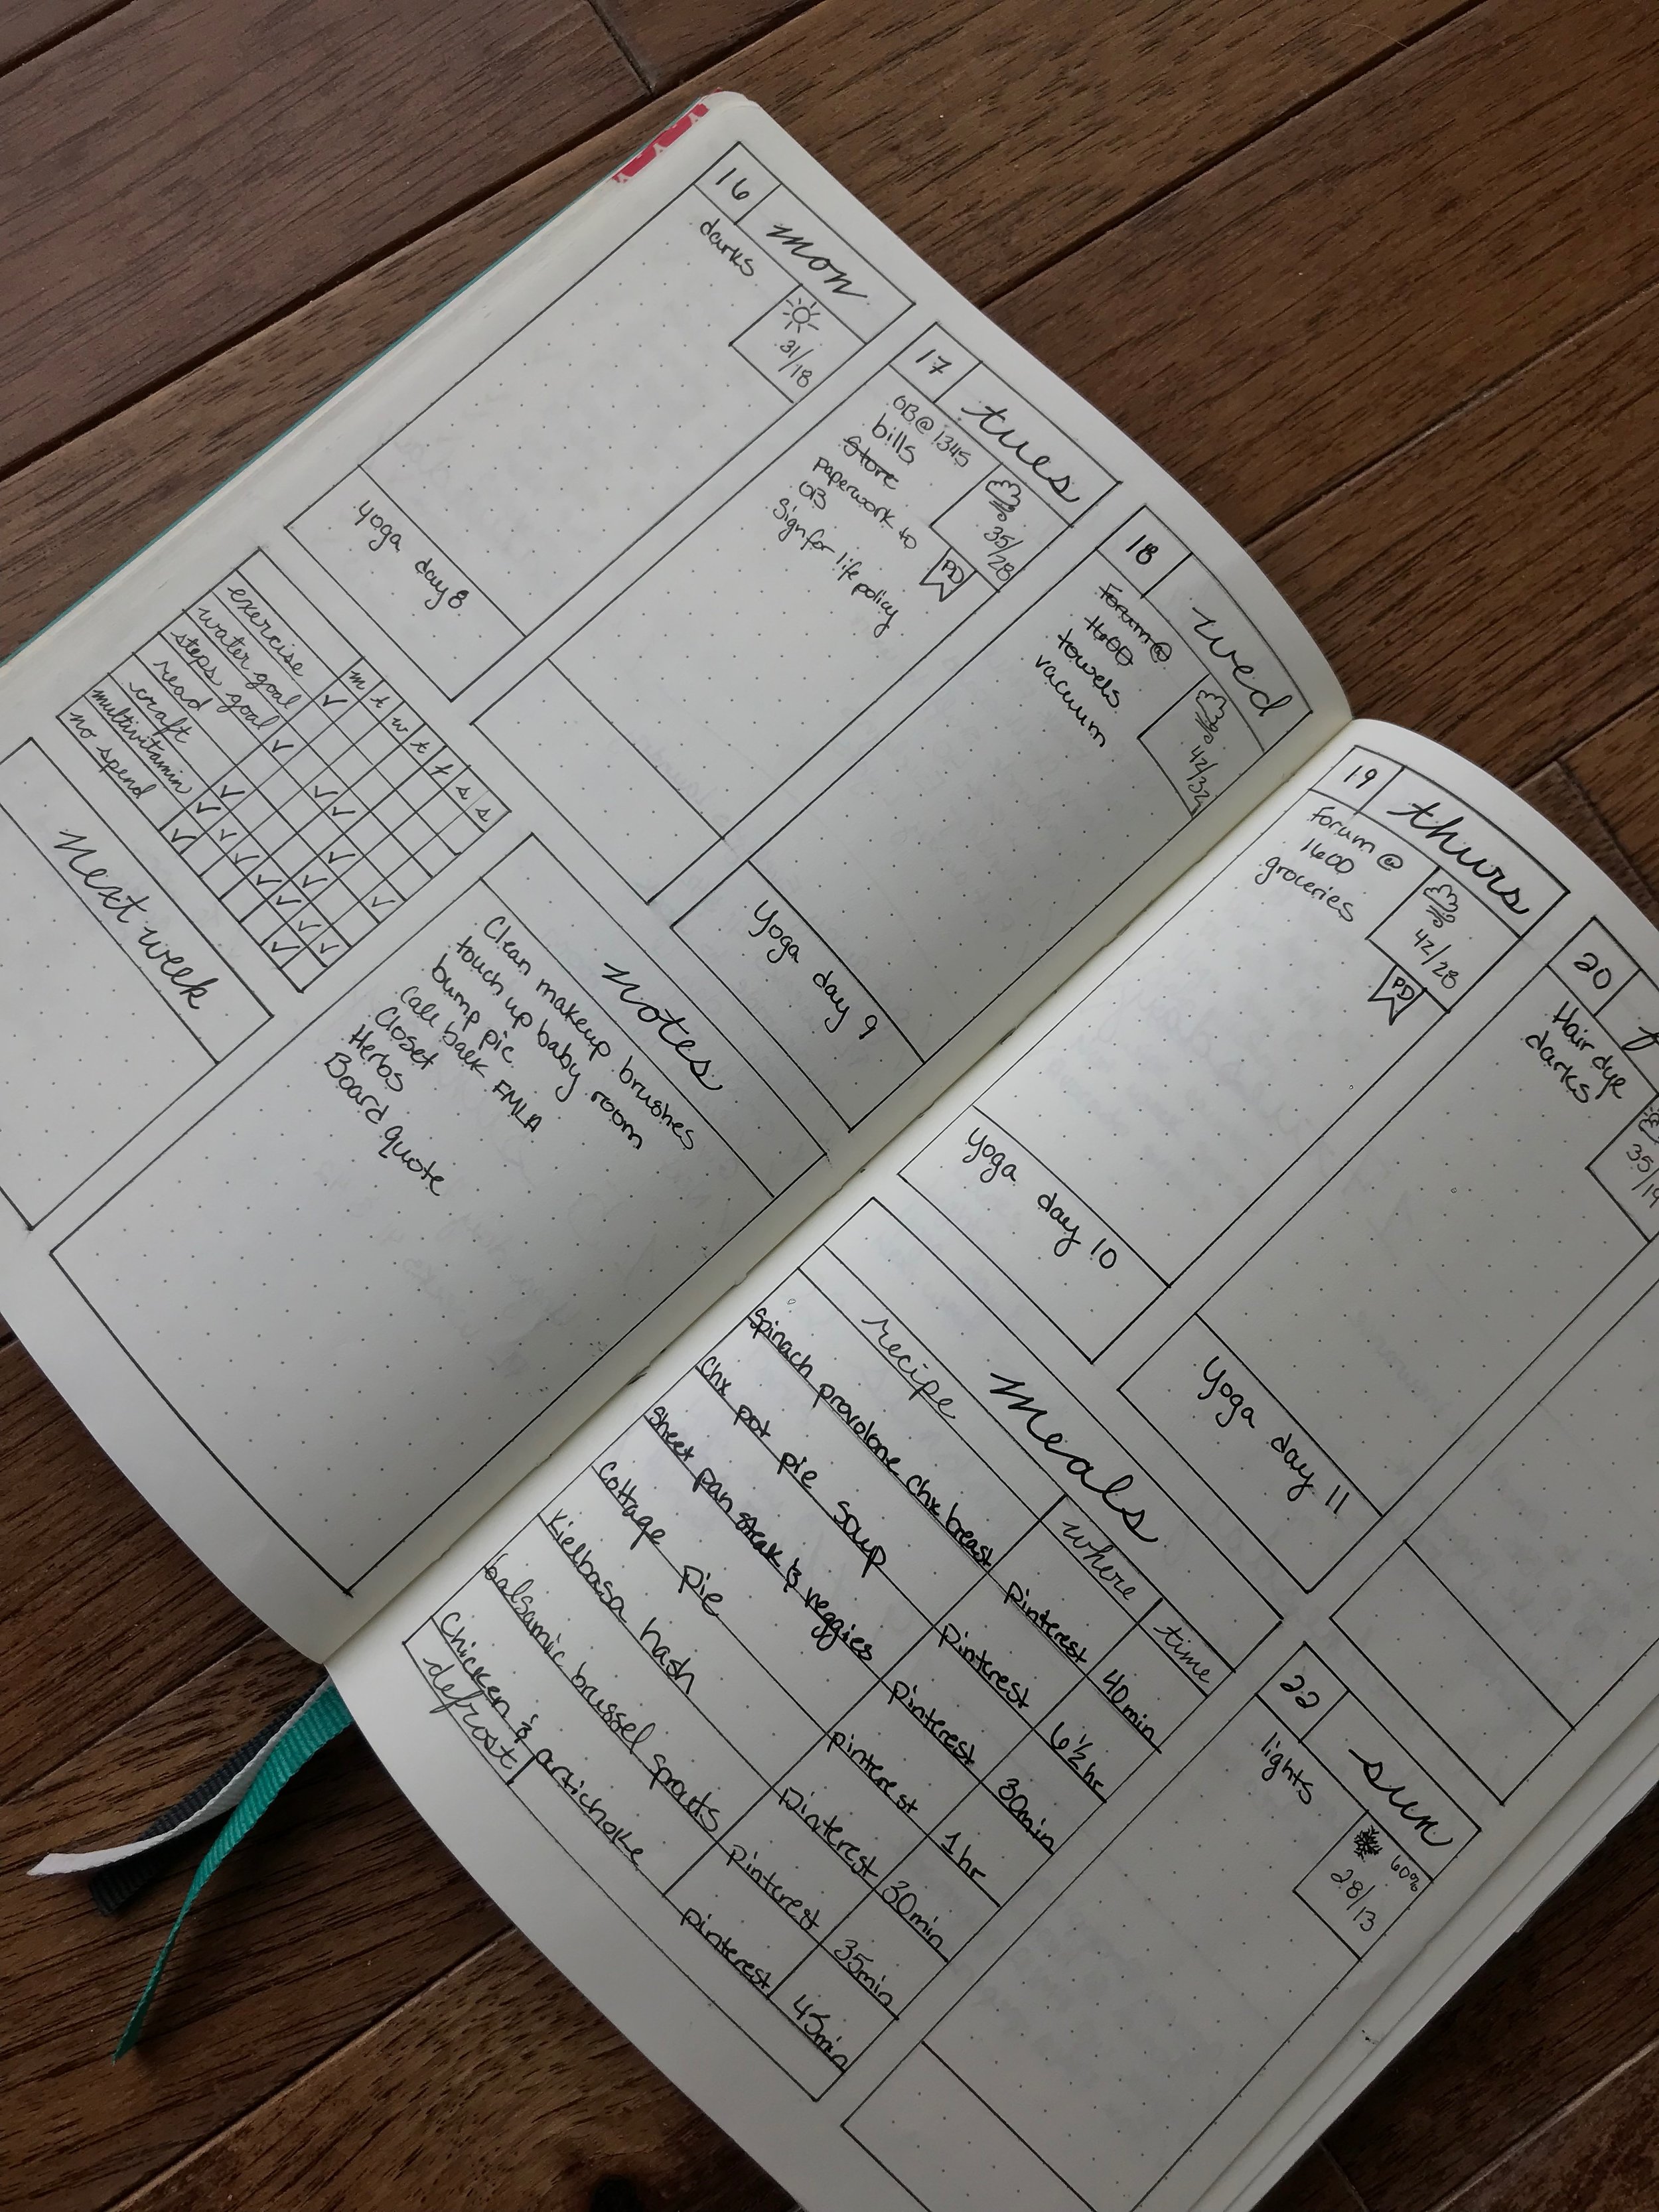 16 mon
darks
31/18
yoga day 8
17 tues
OB @ 1345
bills
Store
paperwork to
OB
Sign for life policy
35/28
PD
18 wed
Forum @
1600
towels
vacuum
42/32
Yoga day 9
m t w t f s s
exercise
water goal
steps goal
read
craft
multivitamin
no spend
next week
notes
Clean makeup brushes
touch up baby room
bump pic
Call back FMLA
Closet
Herbs
Board quote
19 thurs
Forum @
1600
groceries
42/28
PD
Yoga day 10
20 f
Hair dye
darks
35/19
Yoga day 11
Meals
recipe where time
Spinach provolone chx breast pinterest 40min
Chx pot pie soup pinterest 6½ hr
Sheet pan steak & veggies pinterest 30min
Cottage pie pinterest 1 hr
Kielbasa hash pinterest 30min
balsamic brussel sprouts pinterest 35min
Chicken & artichoke pinterest 45min
defrost
22 sun
lights
60%
28/13